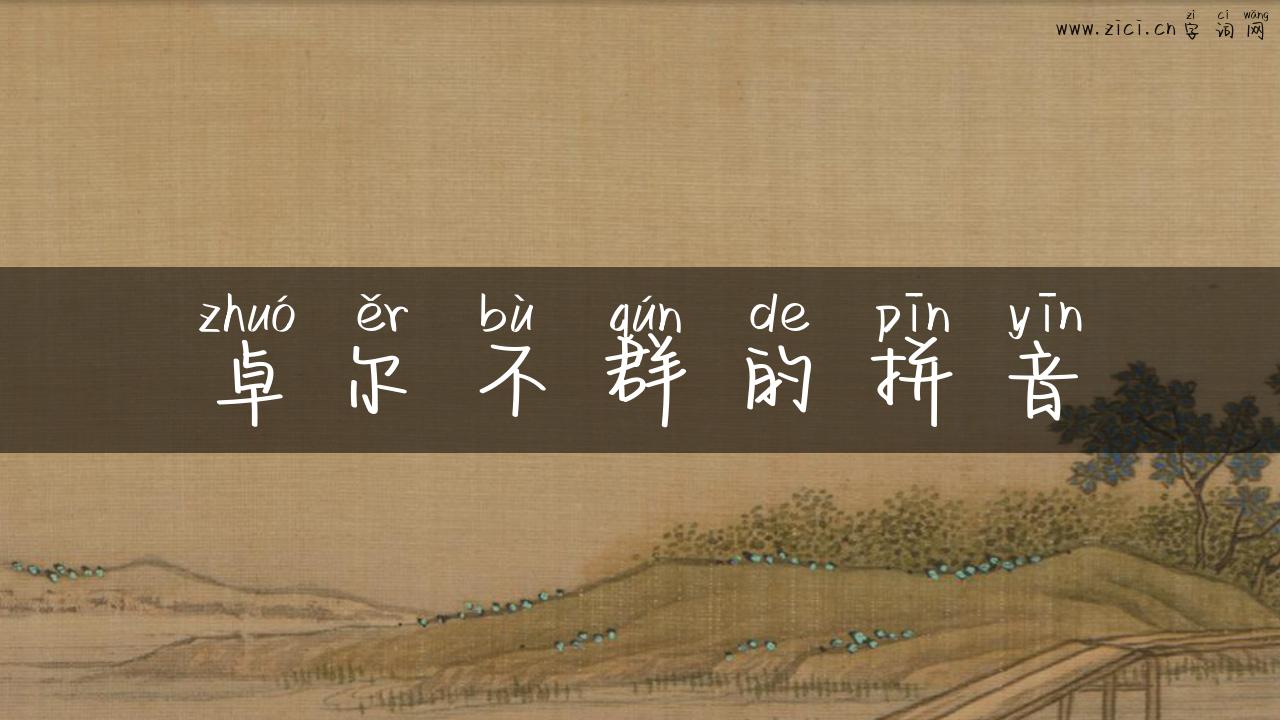 zì cí wǎng
www.zici.cn字词网
zhuó ěr bù qún de pīn yīn
卓尔不群的拼音